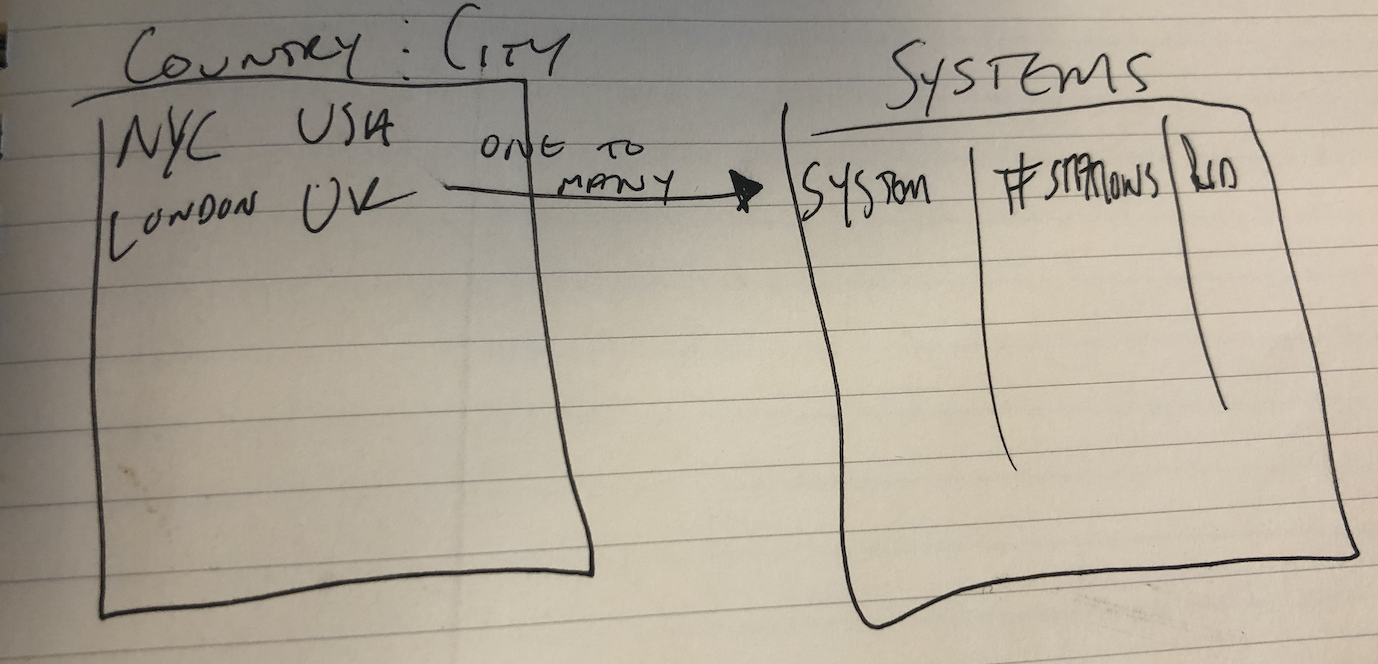 COUNTRY : CITY
NYC USA
LONDON UK
ONE TO
MANY
SYSTEMS
SYSTEM # STATIONS